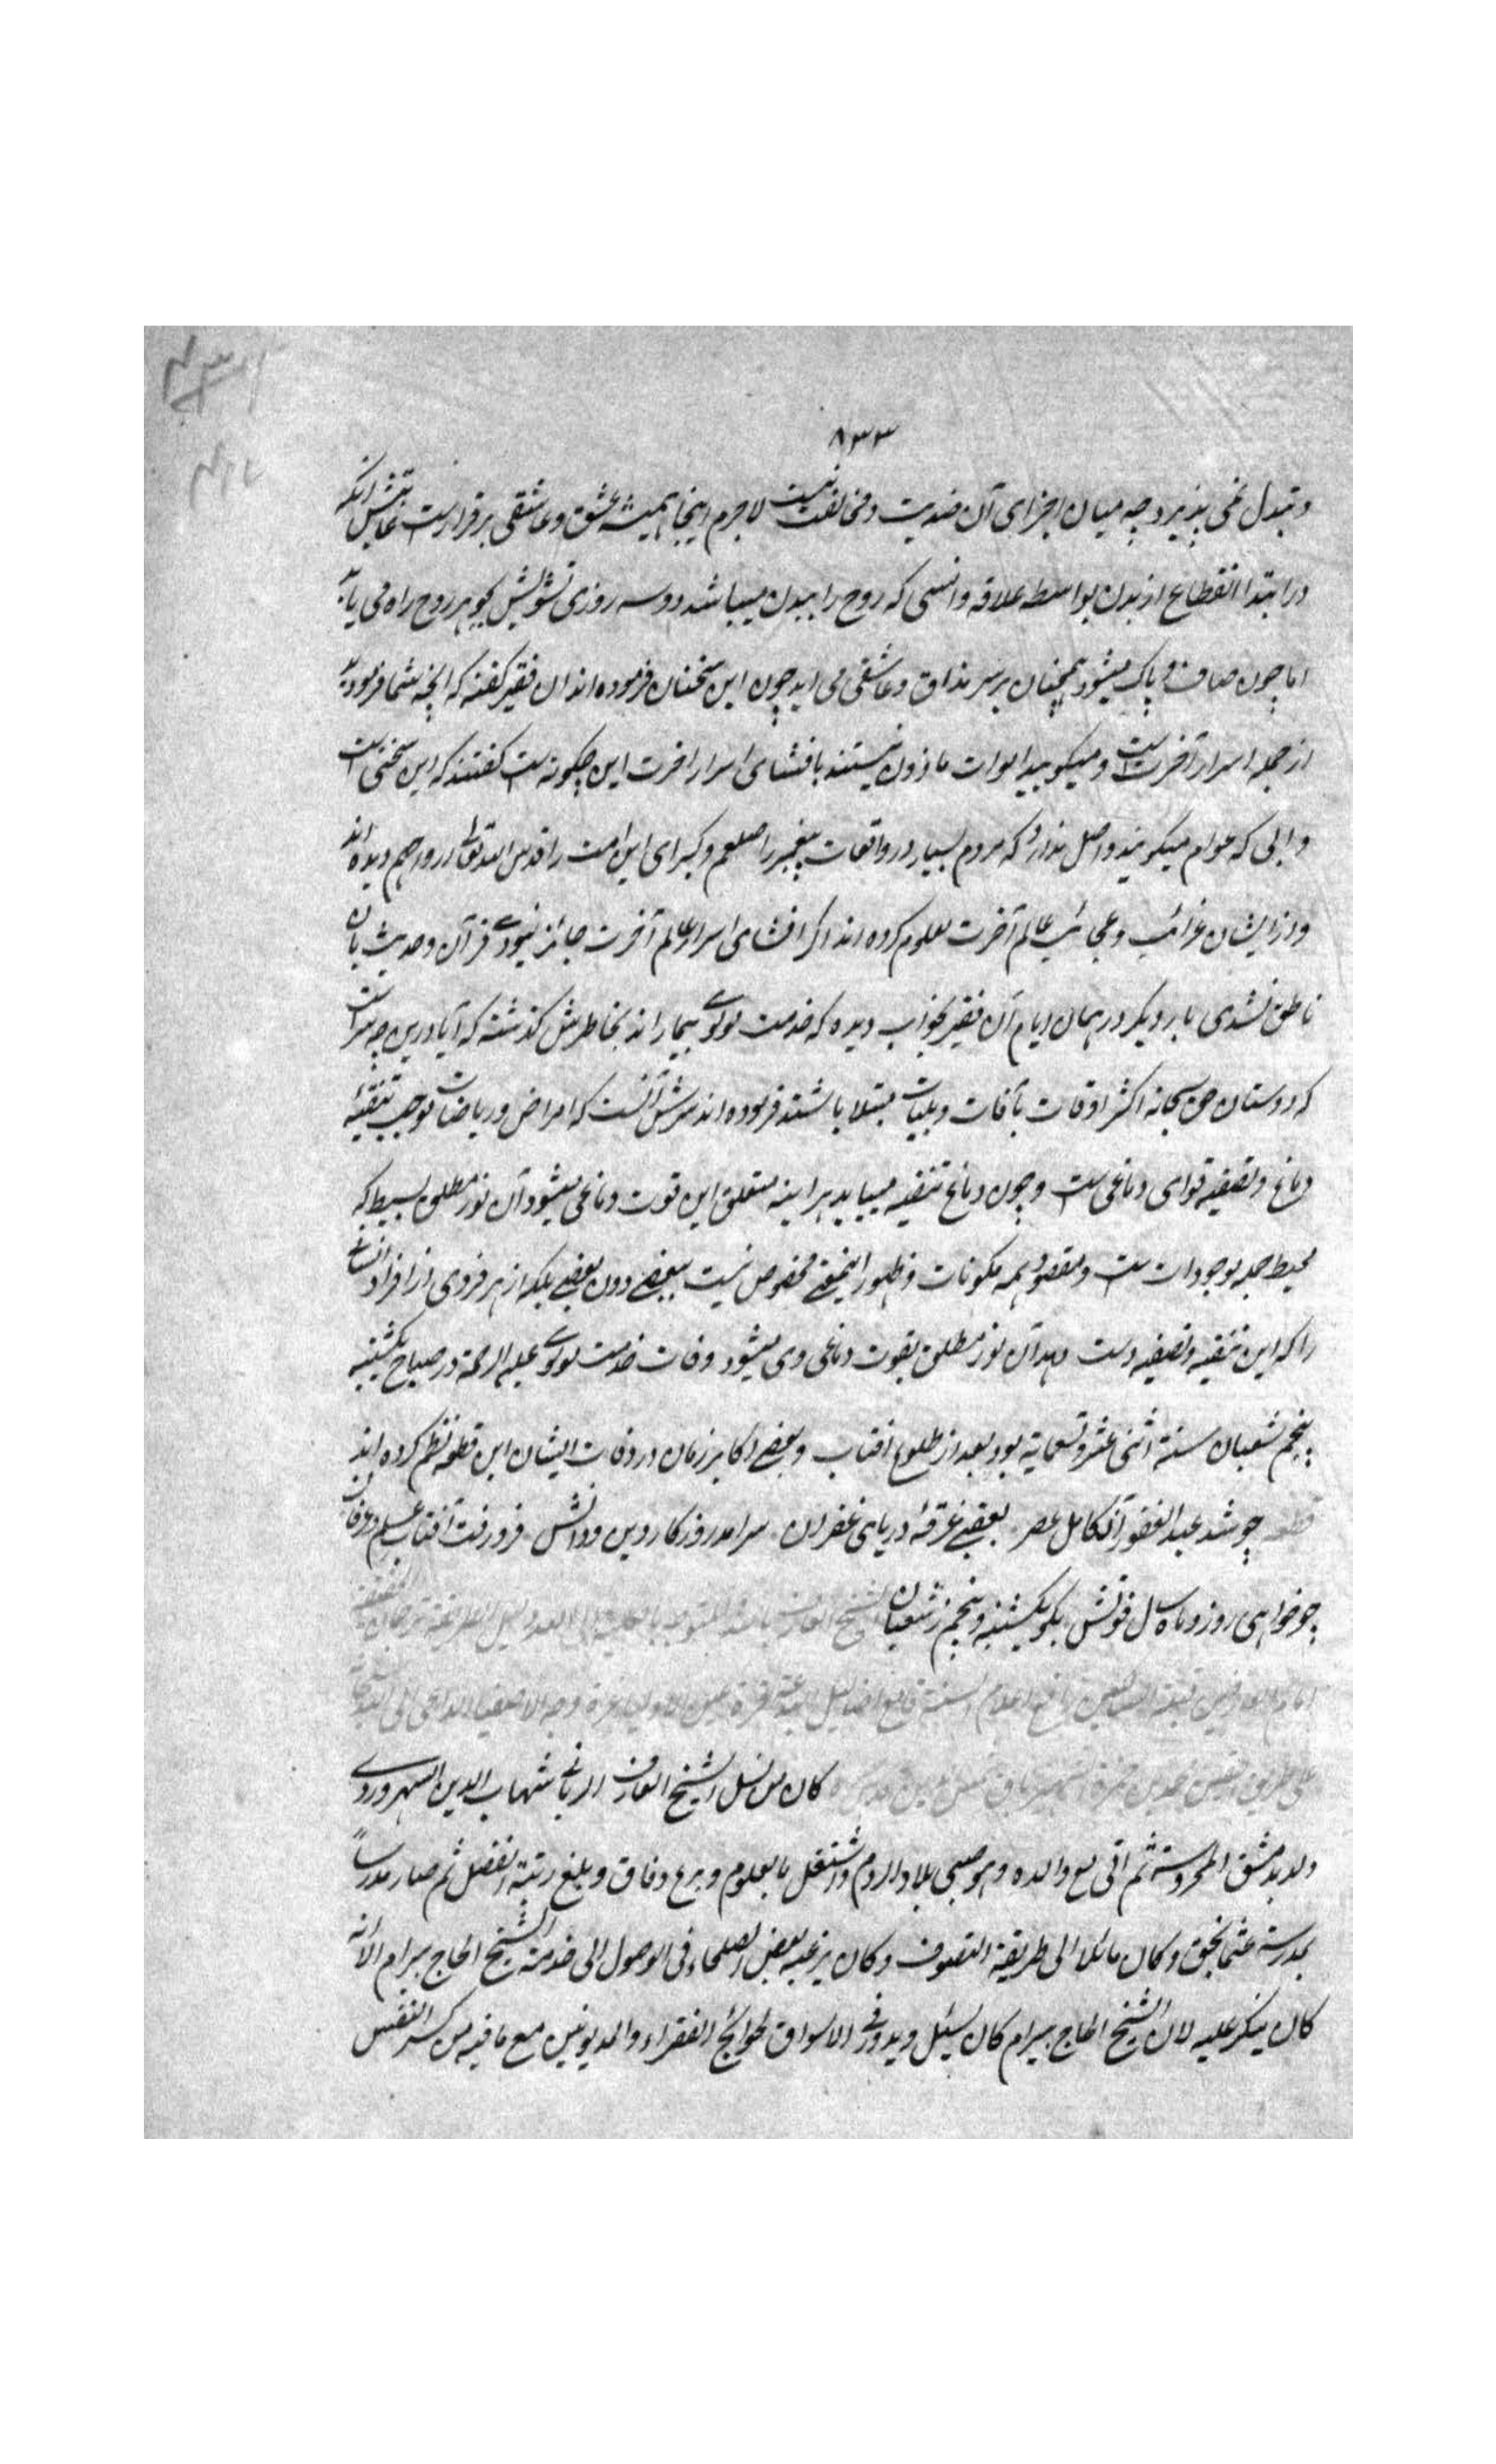 ۸۳۳
و تبدل نمی پذیرد چه میان اجزای آن ضدیت و مخالفت نیست لاجرم اینجا همیشه عشق و عاشقی برقرارست غایتش آنکه
در ابتدا انقطاع از بدن بواسطه علاقه و انسی که روح را ببدن میباشد دو سه روزی تشویش بجوهر روح راه می یابد
اما چون صاف و پاک میشود همچنان بر سر مذاق و عاشقی می آید چون این سخنان فرموده اند آن فقیر گفته که آنچه شما فرمودید
از جمله اسرار آخرت است و میگویند اموات ماذون نیستند بافشای اسرار آخرت این چگونه است گفتند که این سخنی است
که عوام میگویند و اصل ندارد که مردم بسیار در واقعات پیغمبر را صلعم و کبرای این امت را قدس الله تعالی ارواحهم دیده اند
و از ایشان غرائب و عجائب عالم آخرت معلوم کرده اند اگر افشای اسرار عالم آخرت جائز نبودی قرآن و حدیث بآن
ناطق نشدی بار دیگر در همان ایام آن فقیر بخواب دیده که خدمت مولوی بیمار اند بخاطرش گذشته که آیا درین چه سر است
که دوستان حق سبحانه اکثر اوقات بآفات و بلیات مبتلا باشند فرموده اند سرش آنست که امراض و ریاضات موجب تنقیه
دماغ و تصفیه قوای دماغی است و چون دماغ تنقیه مییابد هر آینه متعلق این قوت دماغی میشود آن نور مطلق بسیط که
محیط جمله موجودات است و مقصود همه مکونات و ظهور این معنی مخصوص نیست ببعضی دون بعضی بلکه از هر فردی از افراد انسانی
را که این تنقیه و تصفیه دست دهد آن نور مطلق بقوت دماغی وی میشود وفات خدمت مولوی علیه الرحمة در صباح یکشنبه
پنجم شعبان سنة اثنی عشر و تسعمایة بود بعد از طلوع افتاب و بعضی اکابر زمان در وفات ایشان این قطعه نظم کرده اند
قطعه چو شد عبد الغفور آن کامل عصر بعقبی غرقهٔ دریای غفران سرامد روزکار دین و دانش فرو رفت آفتاب علم و عرفان
چو خواهی روز و ماه و سال فوتش بگو یکشنبه و پنجم ز شعبان الشیخ العارف بالله المتوجه بالکلیة الی الله
امام العارفین السالکین رافع اعلام السنة قامع اضالیل البدعة قرة عین الاولیا غرة وجه الاصفیا الداعی الی الله
علی طریق الیقین محمد بن حمزة الشهیر باق شمس الدین قدس سره کان من نسل الشیخ العارف الربانی شهاب الدین السهروردی
ولد بدمشق المحروسة ثم اتی مع والده و هو صبی بلاد الروم و اشتغل بالعلوم و برع و فاق و بلغ رتبة الفضل ثم صار مدرسا
بمدرسة عثمانجق و کان مائلا الی طریقة التصوف و کان یرغبه بعض الصلحاء فی الوصول الی خدمة الشیخ الحاج بیرام الا انه
کان ینکر علیه لان الشیخ الحاج بیرام کان یسئل و یدور فی الاسواق لحوائج الفقراء و المدیونین مع ما فیه من کسر النفس